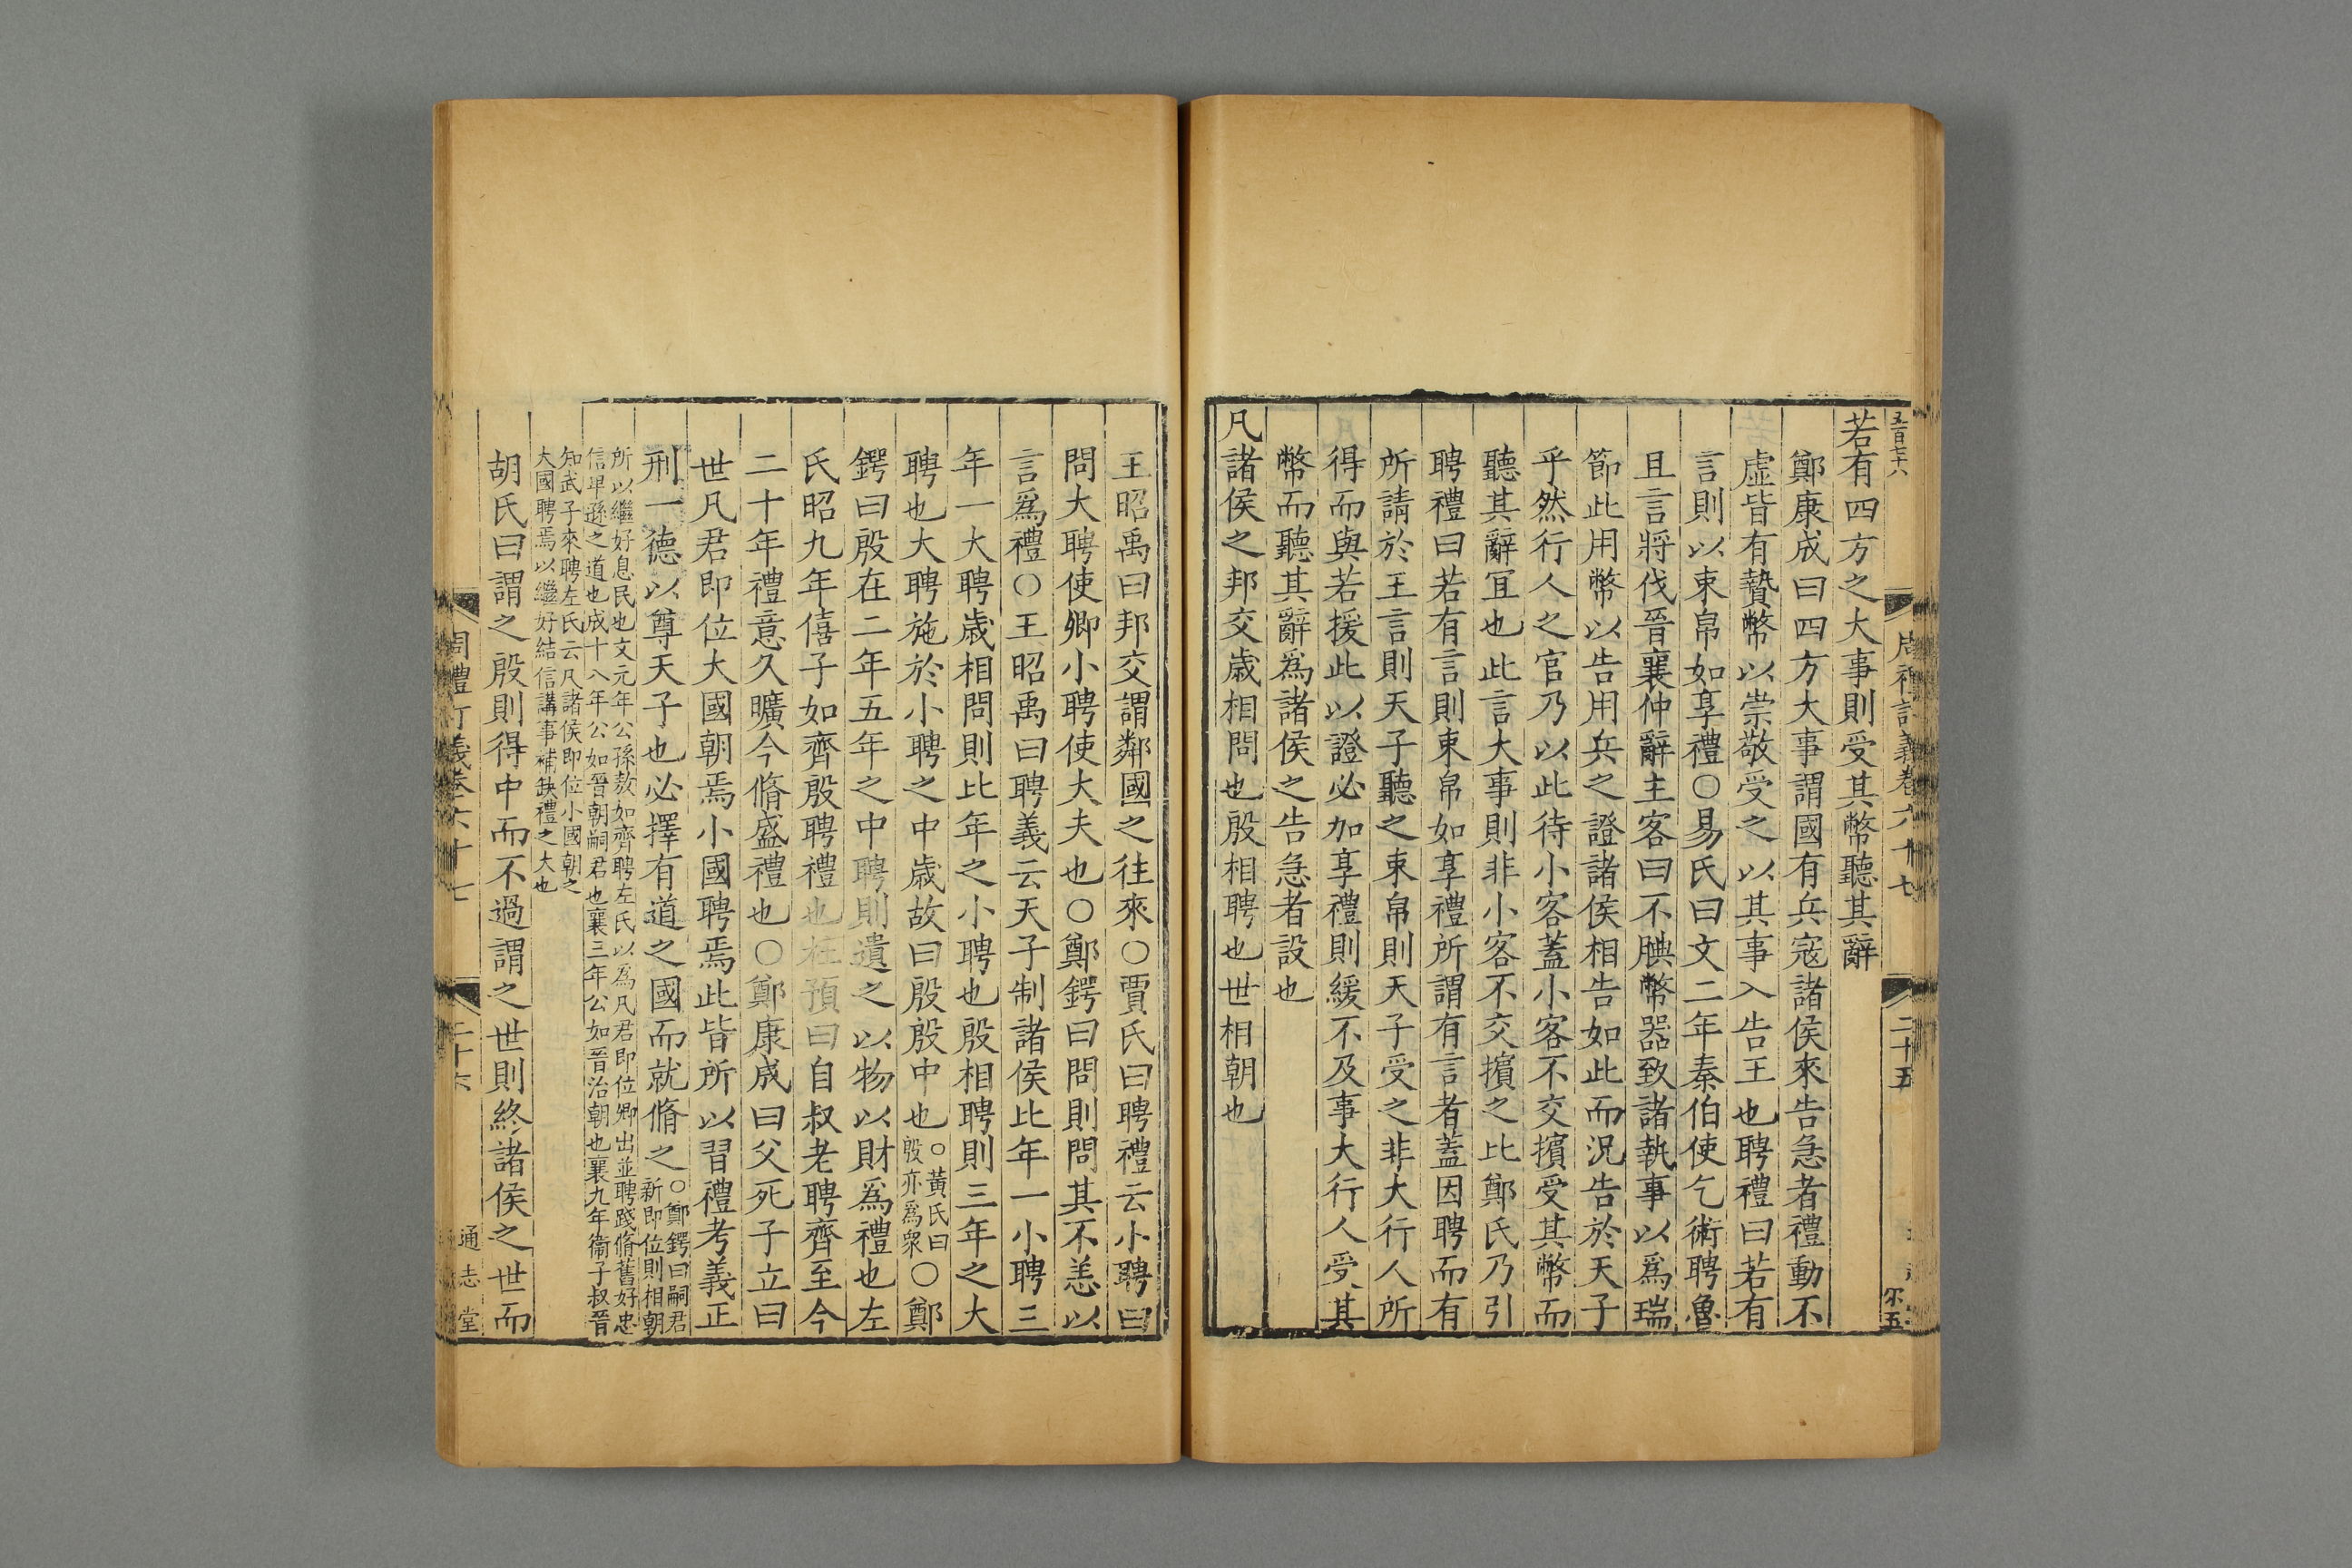 五百七十八
周禮訂義卷六十七
二十五
若有四方之大事則受其幣聽其辭
鄭康成曰四方大事謂國有兵寇諸侯來告急者禮動不
虛皆有贄幣以崇敬受之以其事入告王也聘禮曰若有
言則以束帛如享禮○易氏曰文二年秦伯使乞術聘魯
且言將伐晉襄仲辭主客曰不腆幣器致諸執事以爲瑞
節此用幣以告用兵之證諸侯相告如此而況告於天子
乎然行人之官乃以此待小客蓋小客不交擯受其幣而
聽其辭冝也此言大事則非小客不交擯之比鄭氏乃引
聘禮曰若有言則束帛如享禮所謂有言者蓋因聘而有
所請於王言則天子聽之束帛則天子受之非大行人所
得而與若援此以證必加享禮則緩不及事大行人受其
幣而聽其辭爲諸侯之告急者設也
凡諸侯之邦交歲相問也殷相聘也世相朝也
王昭禹曰邦交謂鄰國之往來○賈氏曰聘禮云小聘曰
問大聘使卿小聘使大夫也○鄭鍔曰問則問其不恙以
言爲禮○王昭禹曰聘義云天子制諸侯比年一小聘三
年一大聘歲相問則比年之小聘也殷相聘則三年之大
聘也大聘施於小聘之中歲故曰殷殷中也○黃氏曰殷亦爲衆○鄭
鍔曰殷在二年五年之中聘則遺之以物以財爲禮也左
氏昭九年僖子如齊殷聘禮也杜預曰自叔老聘齊至今
二十年禮意久曠今脩盛禮也○鄭康成曰父死子立曰
世凡君即位大國朝焉小國聘焉此皆所以習禮考義正
刑一德以尊天子也必擇有道之國而就脩之○鄭鍔曰嗣君新即位則相朝
所以繼好息民也文元年公孫敖如齊聘左氏以爲凡君即位卿出並聘踐脩舊好忠
信卑遜之道也成十八年公如晉朝嗣君也襄三年公如晉治朝也襄九年衞子叔晉
知武子來聘左氏云凡諸侯即位小國朝之
大國聘焉以繼好結信講事補缺禮之大也
胡氏曰謂之殷則得中而不過謂之世則終諸侯之世而
周禮訂義卷六十七
二十六
通志堂